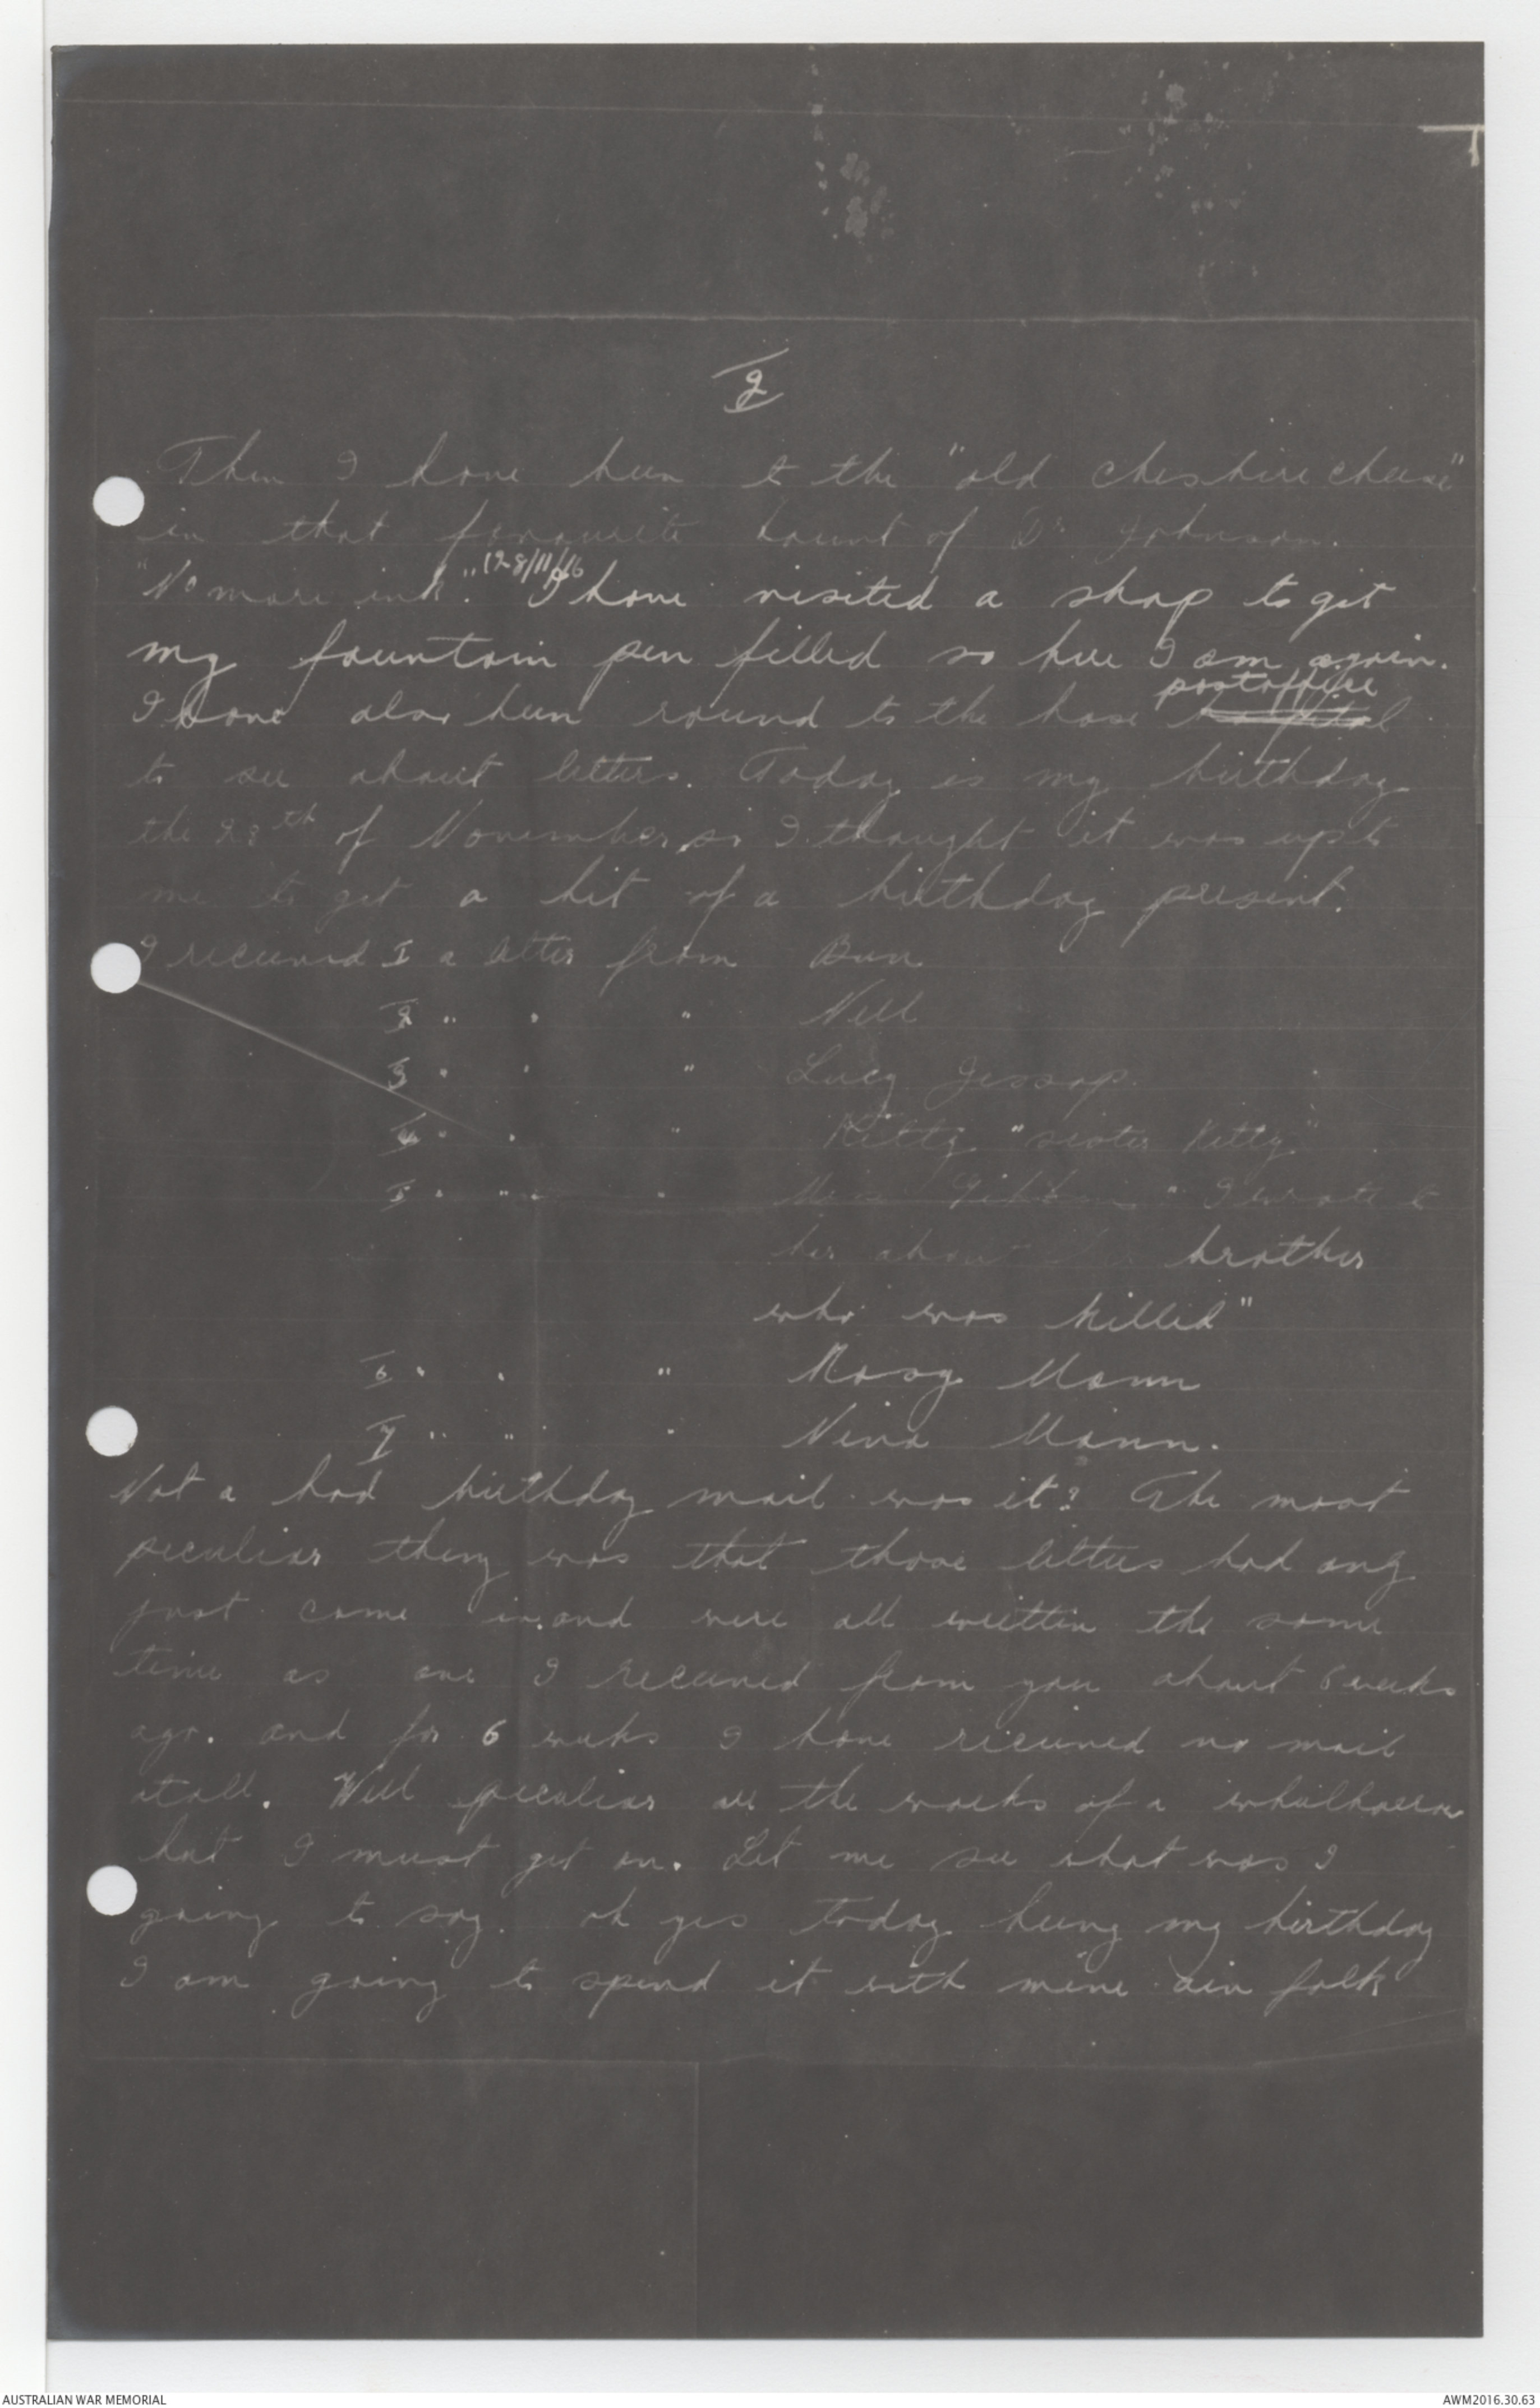 2
Then I have been to the "old cheshire cheese"
in that favourite haunt of Dr Johnson.
"No more ink". (28/11/16 I have visited a shop to get
my fountain pen filled so here I am again.
postoffice
I have also been round to the base hospital
to see about letters. Today is my birthday
the 28th of November, so I thought it was up to
me to get a bit of a birthday present.
I received 1 a letter from Bun
2 " " " Nell
3 " " " Lucy Jessop.
4 " " " Kitty "sister Kitty"
5 " " " " I wrote to
her about her brother
who was killed"
6 " " " Rosy Mann
7 " " " Nina Mann.
Not a bad birthday mail was it? The most
peculiar thing was that those letters had only
just come in and were all written the same
time as one I received from you about 6 weeks
ago. and for 6 weeks I have received no mail
atall. Well peculiar are the works of a wheelbarrow
but I must get on. Let me see what was I
going to say. oh yes today being my birthday
I am going to spend it with mine ain folk
AUSTRALIAN WAR MEMORIAL
AWM2016.30.63